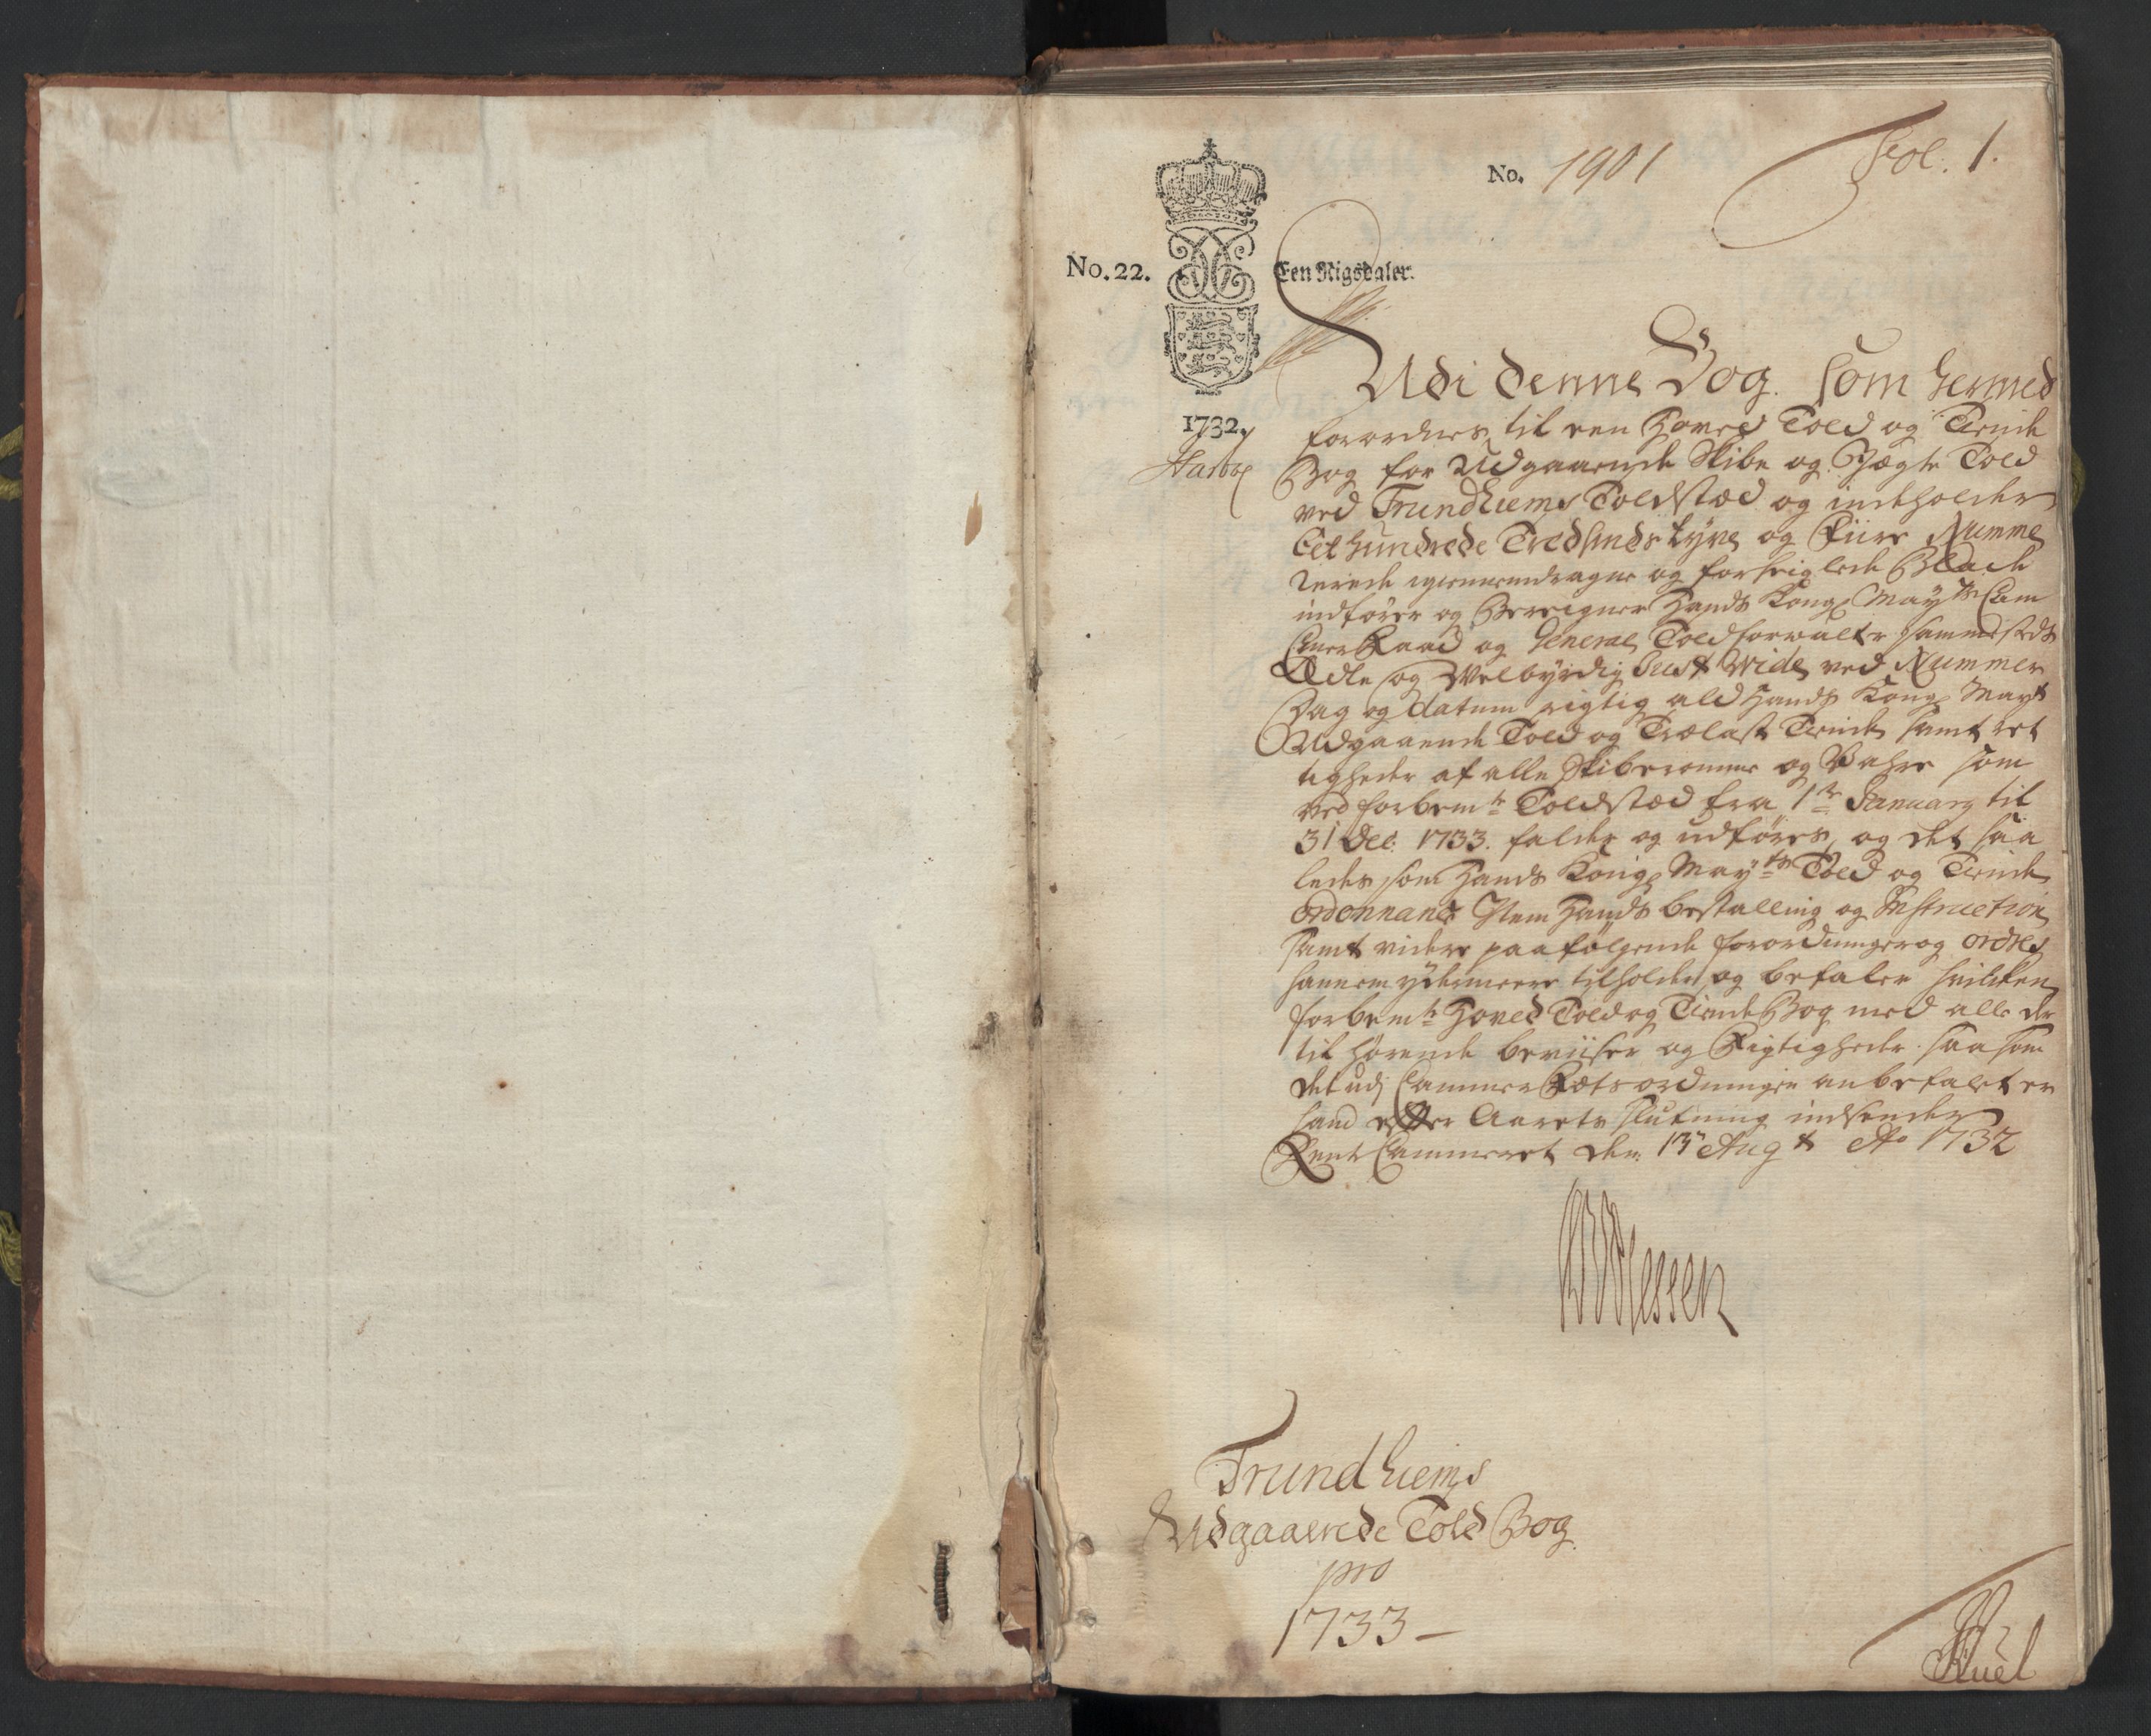 No. 1901
Fol: 1.
No. 22.
Een Rigsdaler.
1732.
Udi denne Bog som hermed
forordnes til een Hoved Told og Tiende
Bog for Udgaaende Skibe og Jægte Told
ved Trundhiems Toldstæd og indeholder
Eet hundrede Tredsindstyve og Fiire Numme
rerede igiennemdragne og forseiglede Blade
indfører og Beregner Hands Kongl May.ts Cam
merRaad og General Toldforvalter sammesteds
Ædle og Welbyrdig Just Wide ved Nummer
Dag og datum rigtig ald Hands Kongl May.ts
Udgaaende Told og Trælast Tiende samt ret
tigheder af alle Skiberomme og Vahre som
ved forbem.te Toldstæd fra 1.te January til
31 Dec: 1733. falder og udføres, og det saa
ledes som Hands Kongl May.ts Told og Tiende
ordonnance Item Hands bestalling og Instruction
samt videre paafølgende forordninger og ordres
hannem ydermeere tilholder og befaler hvilcken
forbem.te Hoved Told og Tiende Bog med alle der
til hørende beviiser og Rigtigheder saasom
det udj Cammer Rætsordningen anbefalet er
hand efter Aarets slutning indsender
Rente Cammeret den 13 Aug.t Ao 1732
Trundhiems
Udgaaende Told Bog
pro
1733 –